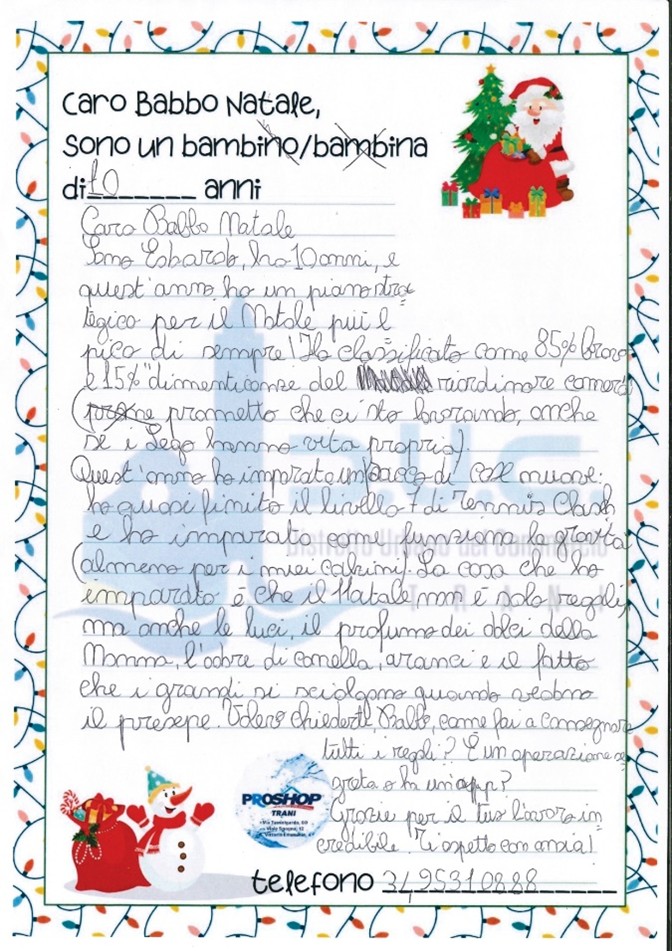 Caro Babbo Natale,
sono un bambino/bambina
di 10 anni
Caro Babbo Natale
Sono Edoardo, ho 10 anni, e
quest'anno ho un piano stra
tegico per il Natale più e
pico di sempre! Ho classificato come 85% bravo
e 15% "dimenticanze del riordinare camera"
( prometto che ci sto lavorando, anche
se i Lego hanno vita propria).
Quest'anno ho imparato un sacco di cose nuove:
ho quasi finito il livello 7 di Tennis Clash
e ho imparato come funziona la gravità
(almeno per i miei calzini). La cosa che ho
imparato è che il Natale non è solo regali,
ma anche le luci, il profumo dei dolci della
Mamma, l'odore di canella, aranci e il fatto
che i grandi si sciolgono quando vedono
il presepe. Volevo chiederti, Babbo, come fai a consegnare
tutti i regali? È un operazione se
greta o ha un'app?
Grazie per il tuo lavoro in
credibile. Ti aspetto con ansia!
D.U.C.
Distretto Urbano del Commercio
TRANI
PROSHOP
TRANI
telefono 3495310888